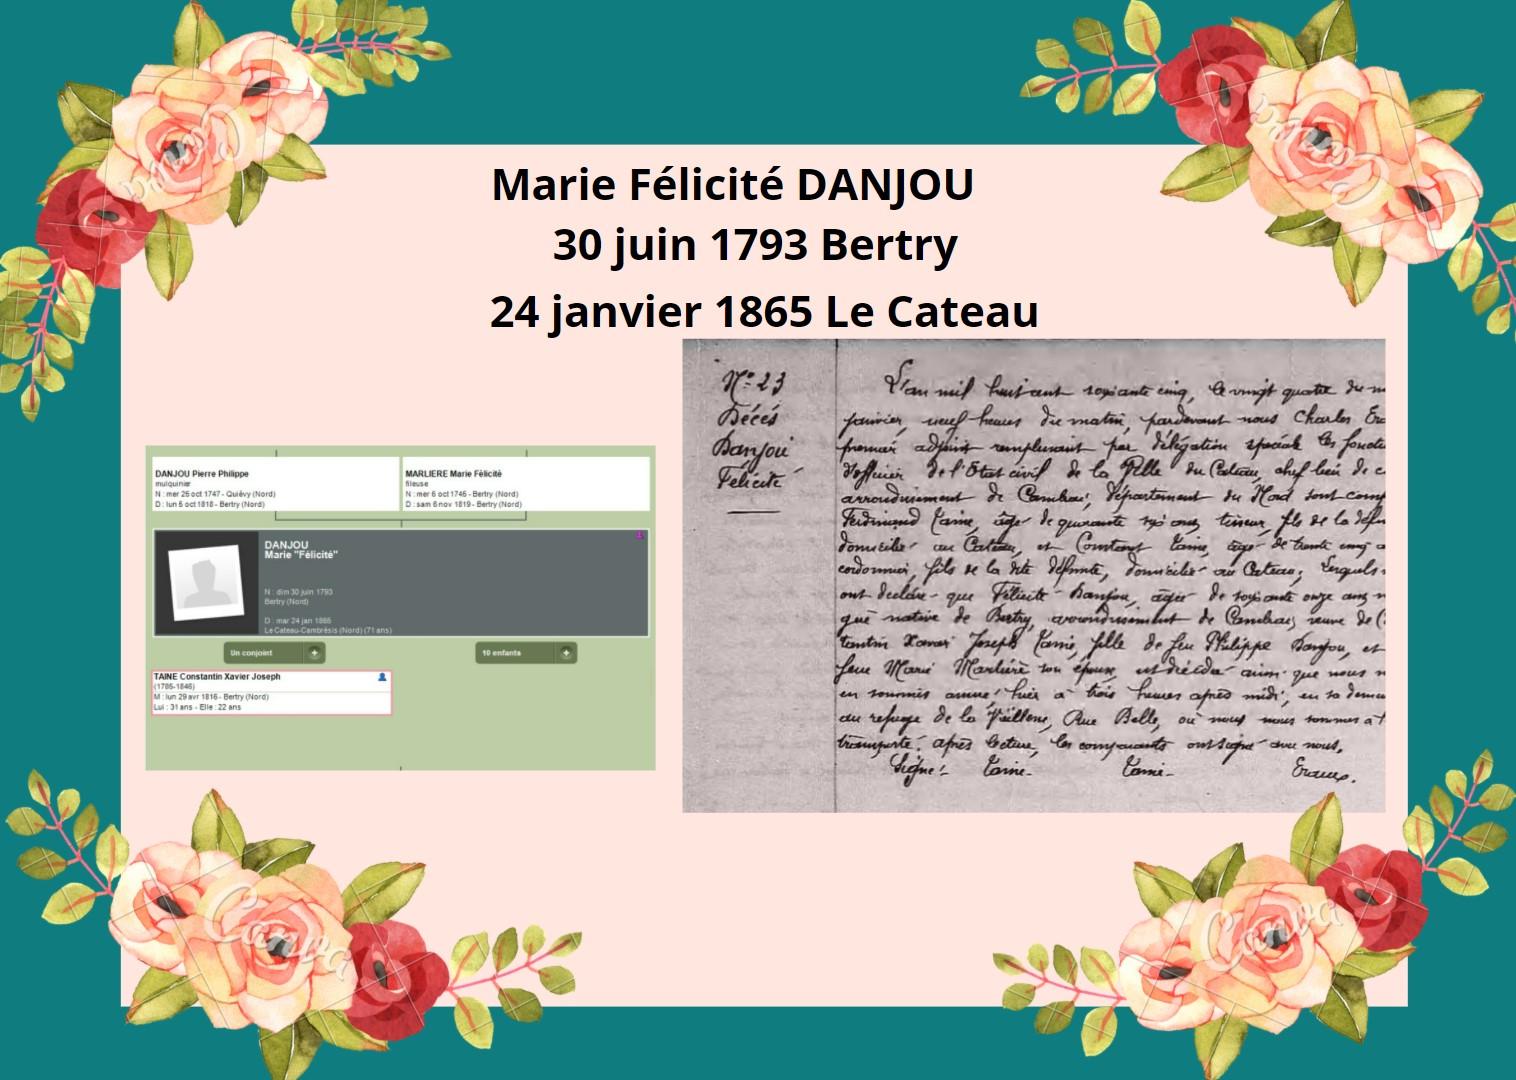 Marie Félicité DANJOU
30 juin 1793 Bertry
24 janvier 1865 Le Cateau
DANJOU Pierre Philippe
mulquinier
N : mer 25 oct 1747 - Quiévy (Nord)
D : lun 5 oct 1818 - Bertry (Nord)
MARLIERE Marie Félicité
fileuse
N : mer 6 oct 1745 - Bertry (Nord)
D : sam 6 nov 1819 - Bertry (Nord)
DANJOU
Marie "Félicité"
N : dim 30 juin 1793
Bertry (Nord)
D : mar 24 jan 1865
Le Cateau-Cambrésis (Nord) (71 ans)
Un conjoint +
10 enfants +
TAINE Constantin Xavier Joseph
(1785-1846)
M : lun 29 avr 1816 - Bertry (Nord)
Lui : 31 ans - Elle : 22 ans
N° 23
Décès
Danjou
Félicité
L'an mil huit cent soixante cinq, le vingt quatre du m
janvier, neuf heures du matin, pardevant nous Charles
premier adjoint remplissant par délégation spéciale les foncti
d'officier de l'Etat civil de la Ville du Cateau, chef lieu de c
arrondissement de Cambrai, département du Nord sont comp
Ferdinand Taine, âgé de quarante six ans, tisseur, fils de la défun
domicilié au Cateau, et Constant Taine, âgé de trente cinq a
cordonnier, fils de la dite défunte, domicilié au Cateau; Lesquels
ont déclaré que Félicité Danjou, âgée de soixante onze ans
née native de Bertry, arrondissement de Cambrai, veuve de C
tantin Xavier Joseph Taine, fille de feu Philippe Danjou, et
feue Marie Marlière son épouse est décédée ainsi que nous
nous en sommes assuré hier à trois heures après midi, en sa deme
au refuge de la Vieillesse, Rue Belle, où nous nous sommes
transporté. après lecture, les comparants ont signé avec nous,
Signé: Taine- Taine-
Canva
Canva
Canva
Canva